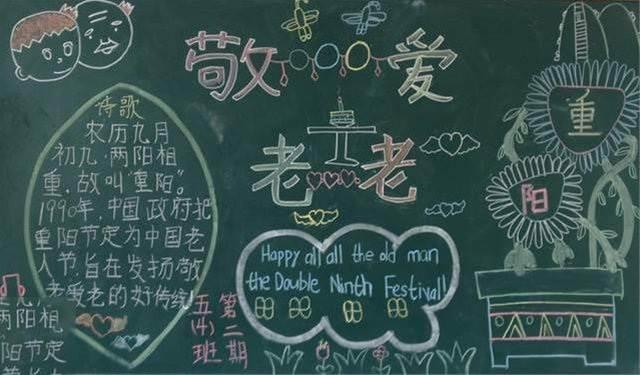 敬爱
老老
诗歌
农历九月
初九,两阳相
重,故叫"重阳"。
1990年,中国政府把
重阳节定为中国老
人节,旨在发扬敬
老爱老的好传统!
两阳相
阳节定
Happy all all the old man
the Double Ninth Festival!
第二期
五(4)班
重
阳